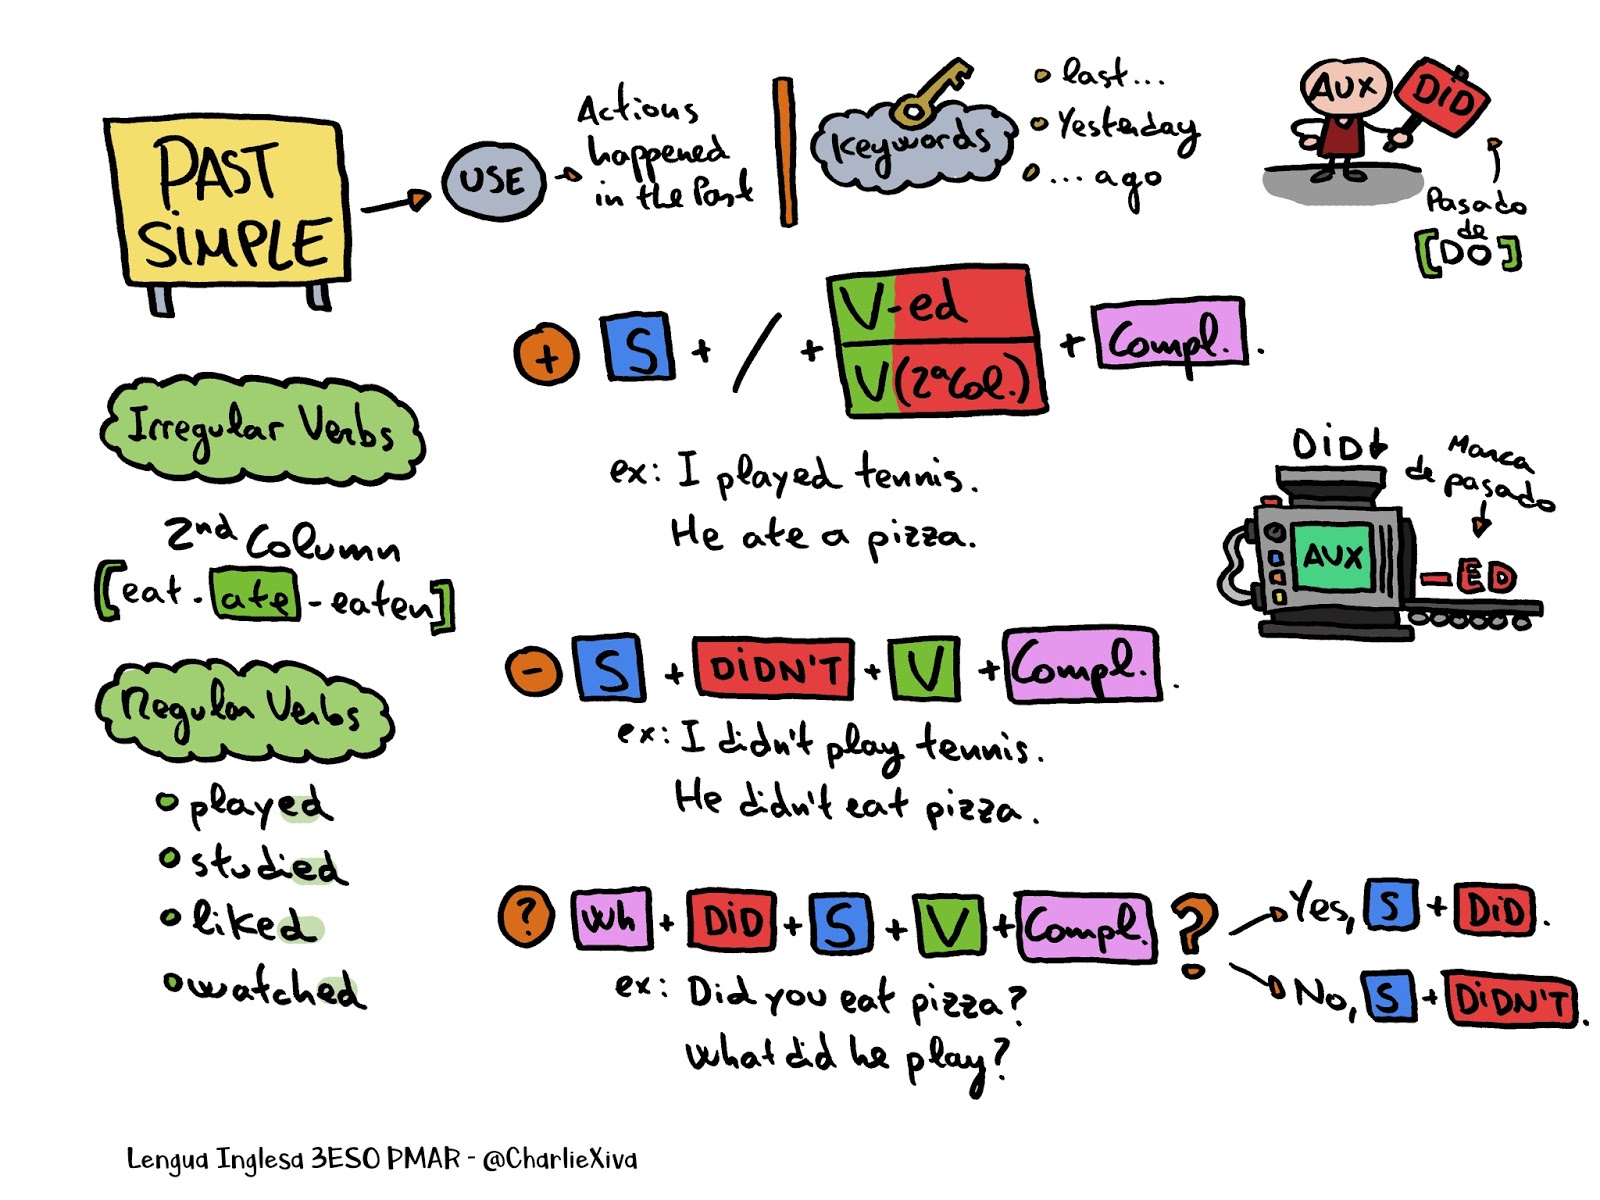 PAST
SIMPLE
USE
Actions
happened
in the Past
Keywords
last...
Yesterday
... ago
AUX
DiD
Pasado
de
[DO]
+ S + / + V-ed + Compl.
V (2ªCol.)
ex: I played tennis.
He ate a pizza.
Irregular Verbs
2nd Column
[eat - ate - eaten]
Regular Verbs
played
studied
liked
watched
DiD
Marca
de pasado
AUX
-ED
- S + DiDN'T + V + Compl.
ex: I didn't play tennis.
He didn't eat pizza.
? Wh + DiD + S + V + Compl. ?
Yes, S + DiD.
No, S + DiDN'T.
ex: Did you eat pizza?
What did he play?
Lengua Inglesa 3ESO PMAR - @CharlieXiva